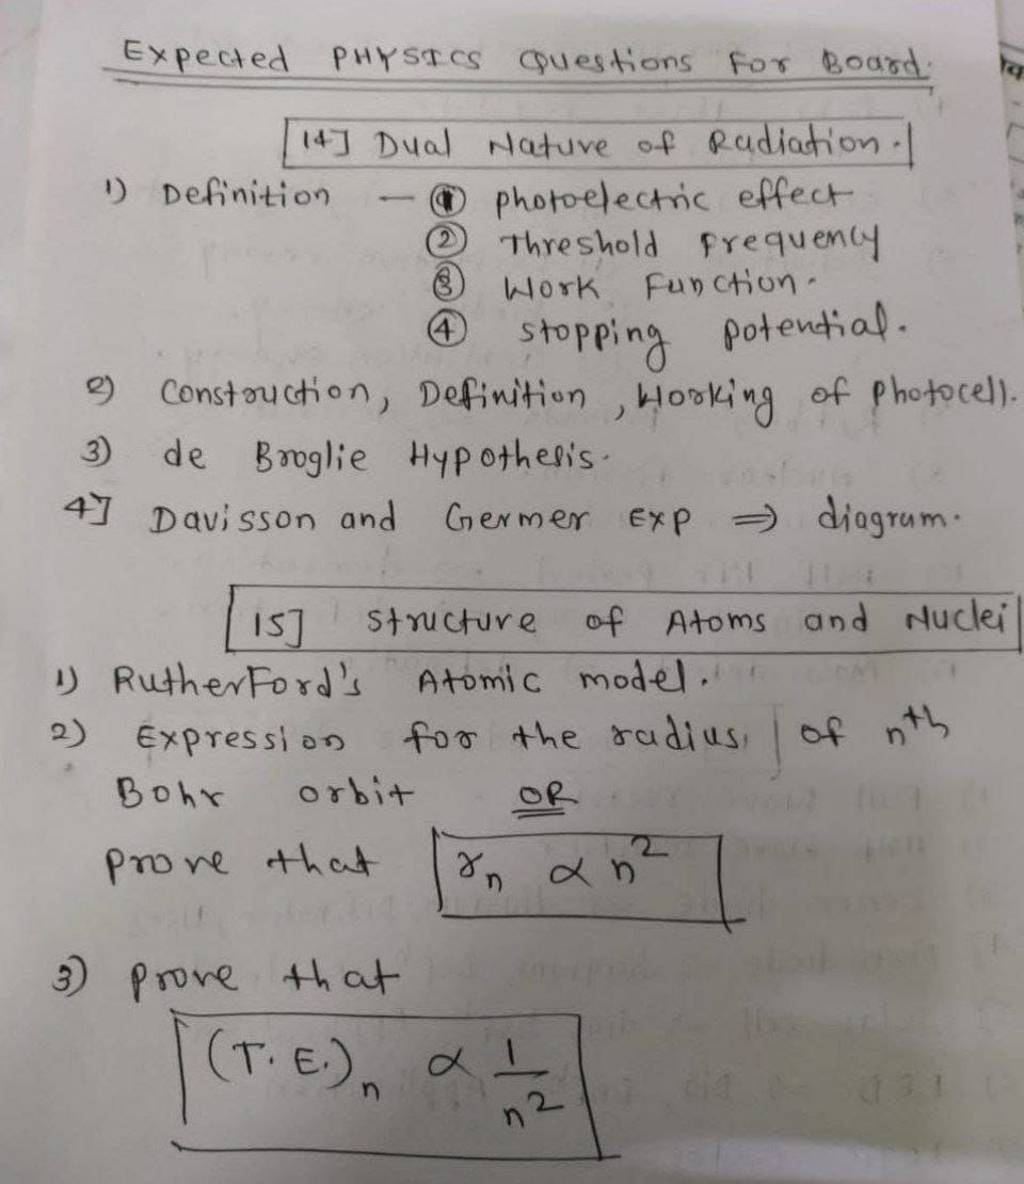 Expected PHYSICS Questions For Board.
14] Dual Nature of Radiation.
1) Definition — ① photoelectric effect
② Threshold frequency
③ Work Function.
④ stopping potential.
2) Construction, Definition, Working of Photocell.
3) de Broglie Hypothesis.
4] Davisson and Germer Exp ⇒ diagram.
15] Structure of Atoms and Nuclei
1) RutherFord's Atomic model.
2) Expression for the radius, of nth
Bohr orbit OR
prove that rn ∝ n²
3) prove that
(T.E.)n ∝ 1/n²